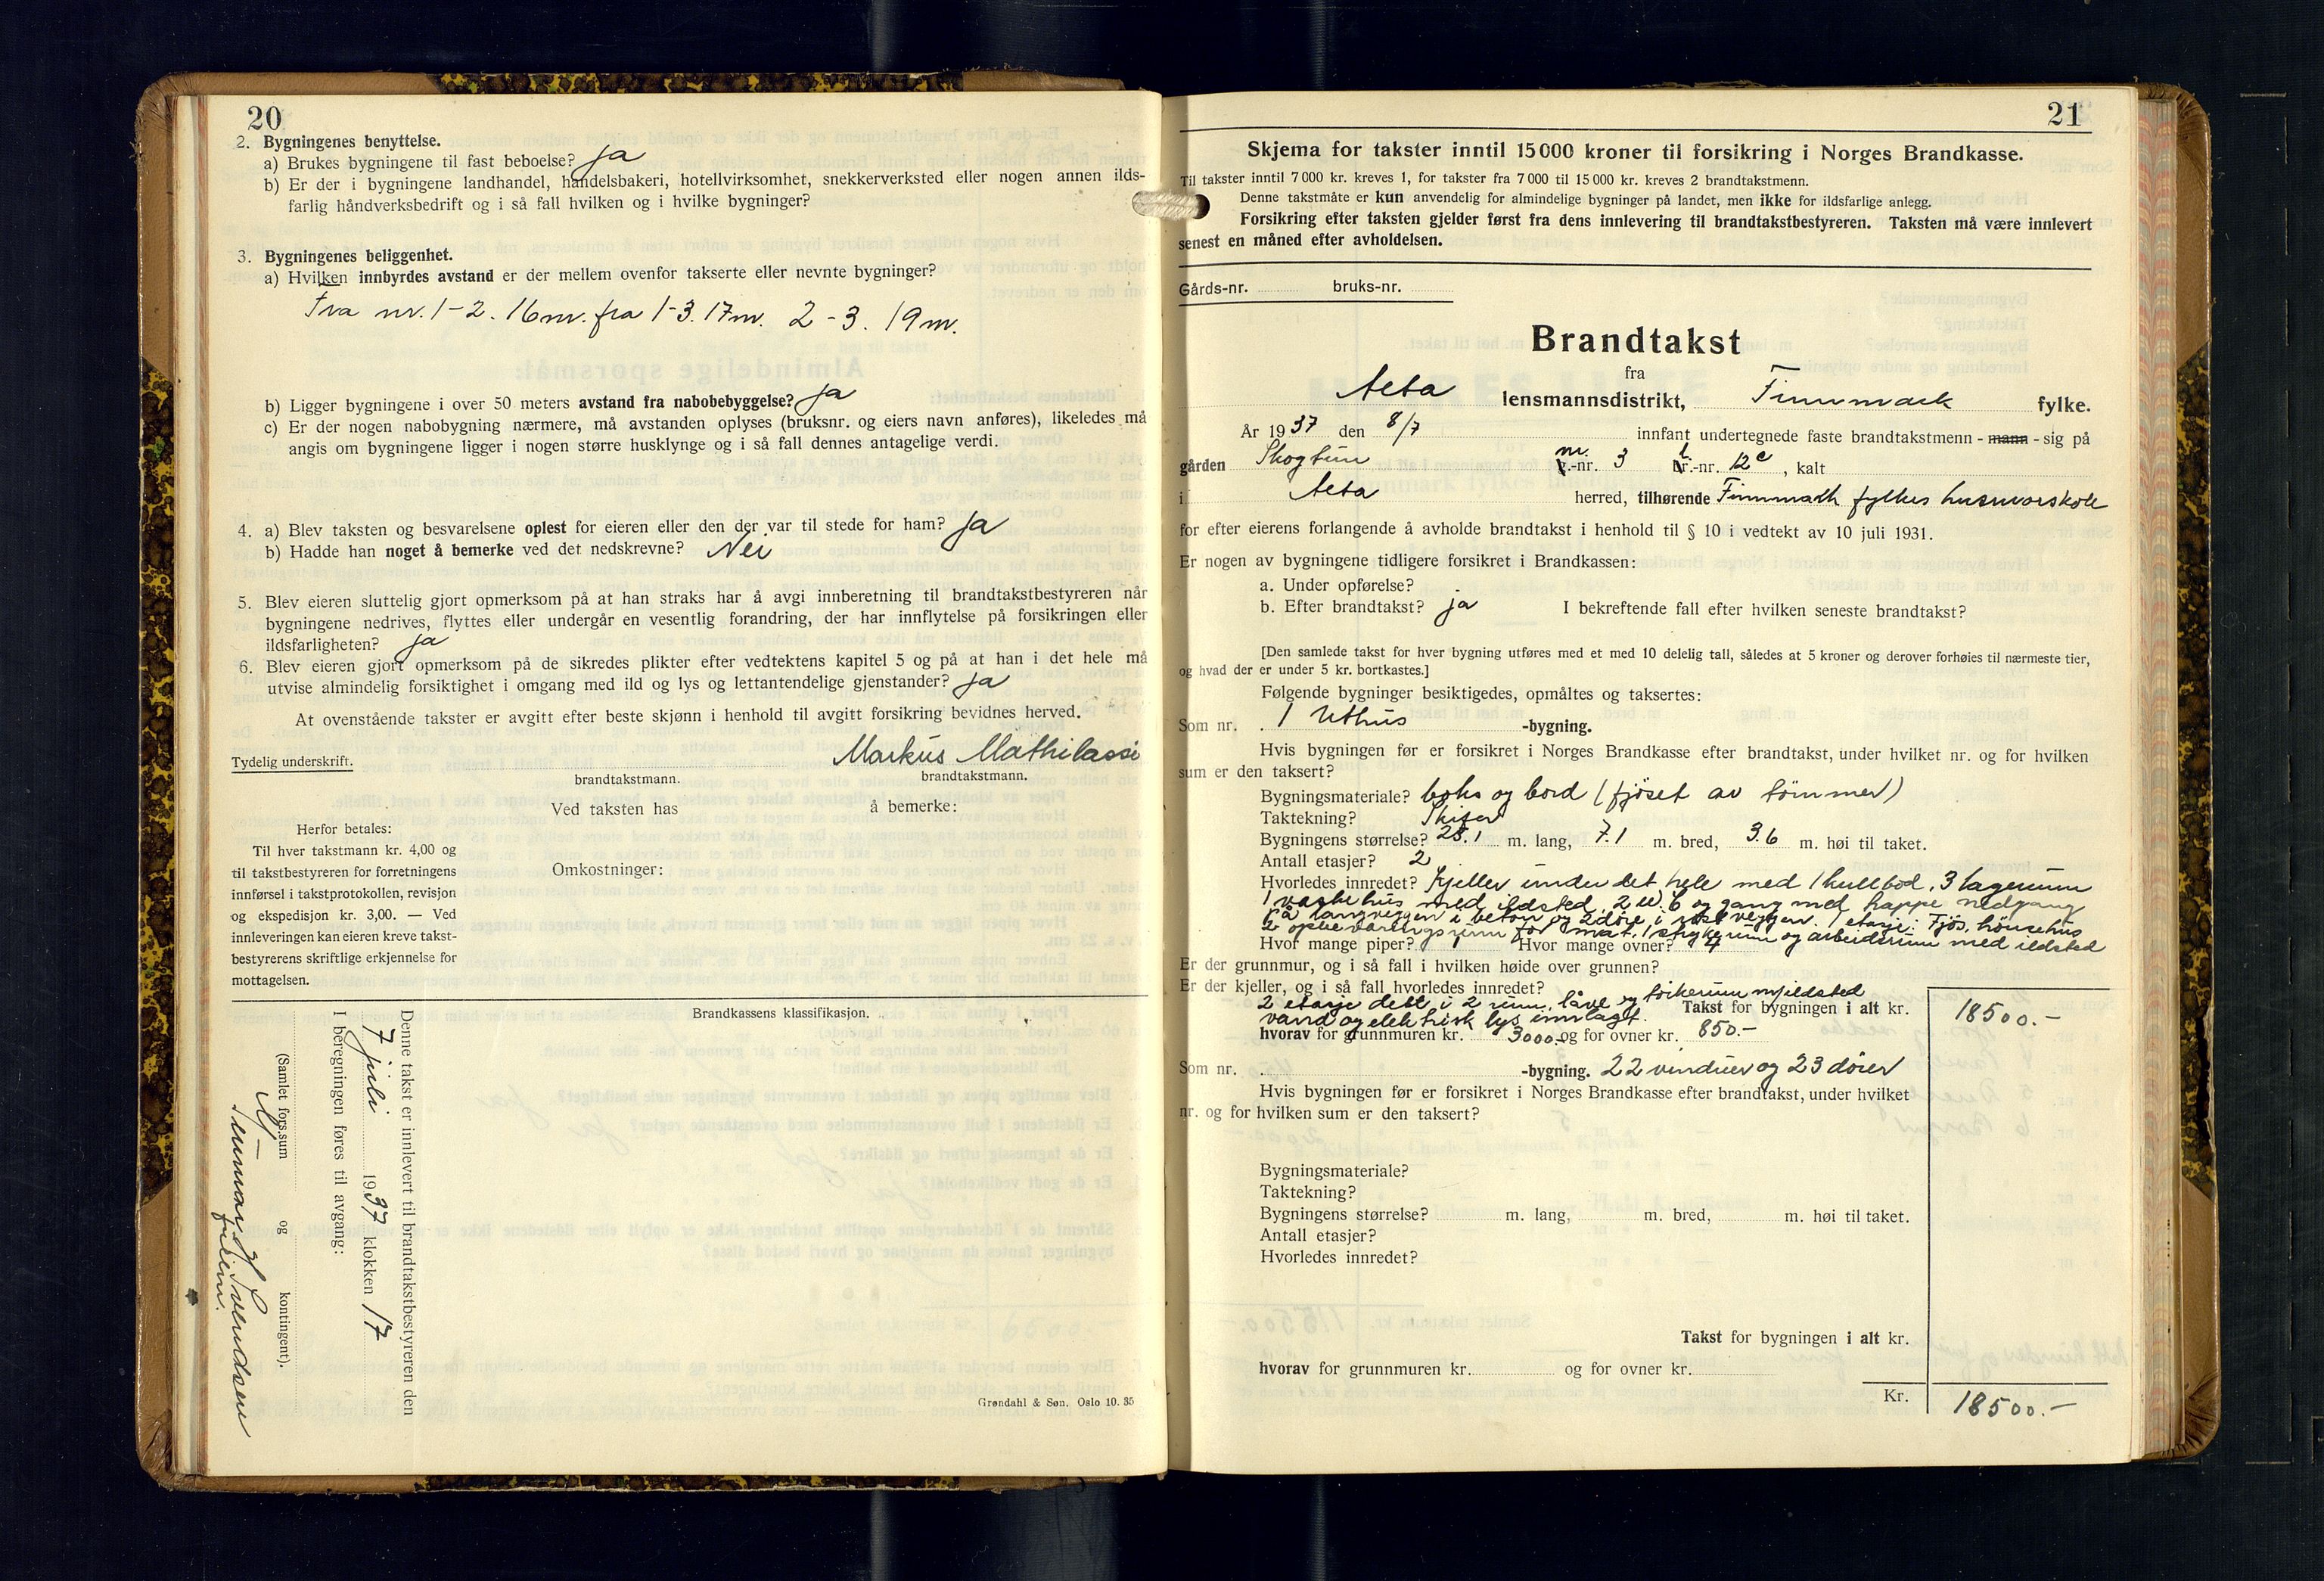 20
2. Bygningenes benyttelse.
a) Brukes bygningene til fast beboelse? ja
b) Er der i bygningene landhandel, handelsbakeri, hotellvirksomhet, snekkerverksted eller nogen annen ilds-
farlig håndverksbedrift og i så fall hvilken og i hvilke bygninger?
3. Bygningenes beliggenhet.
a) Hvilken innbyrdes avstand er der mellem ovenfor takserte eller nevnte bygninger?
Fra nr. 1-2. 16 m. fra 1-3. 17 m. 2-3. 19 m.
b) Ligger bygningene i over 50 meters avstand fra nabobebyggelse? ja
c) Er der nogen nabobygning nærmere, må avstanden oplyses (bruksnr. og eiers navn anføres), likeledes må
angis om bygningene ligger i nogen større husklynge og i så fall dennes antagelige verdi.
4. a) Blev taksten og besvarelsene oplest for eieren eller den der var til stede for ham? ja
b) Hadde han noget å bemerke ved det nedskrevne? Nei
5. Blev eieren sluttelig gjort opmerksom på at han straks har å avgi innberetning til brandtakstbestyreren når
bygningene nedrives, flyttes eller undergår en vesentlig forandring, der har innflytelse på forsikringen eller
ildsfarligheten? ja
6. Blev eieren gjort opmerksom på de sikredes plikter efter vedtektens kapitel 5 og på at han i det hele må
utvise almindelig forsiktighet i omgang med ild og lys og lettantendelige gjenstander? ja
At ovenstående takster er avgitt efter beste skjønn i henhold til avgitt forsikring bevidnes herved.
Tydelig underskrift. Markus Mathilassi
brandtakstmann. brandtakstmann.
Ved taksten has å bemerke:
Herfor betales:
Til hver takstmann kr. 4,00 og
til takstbestyreren for forretningens
innførsel i takstprotokollen, revisjon
og ekspedisjon kr. 3,00. — Ved
innleveringen kan eieren kreve takst-
bestyrerens skriftlige erkjennelse for
mottagelsen.
Omkostninger:
Brandkassens klassifikasjon.
Denne takst er innlevert til brandtakstbestyreren den
7 juli 1937 klokken 17
I beregningen føres til avgang:
(Samlet fors.sum og kontingent).
Grøndahl & Søn. Oslo 10. 35
21
Skjema for takster inntil 15000 kroner til forsikring i Norges Brandkasse.
Til takster inntil 7 000 kr. kreves 1, for takster fra 7 000 til 15 000 kr. kreves 2 brandtakstmenn.
Denne takstmåte er kun anvendelig for almindelige bygninger på landet, men ikke for ildsfarlige anlegg.
Forsikring efter taksten gjelder først fra dens innlevering til brandtakstbestyreren. Taksten må være innlevert
senest en måned efter avholdelsen.
Gårds-nr. bruks-nr.
Brandtakst
fra
Alta lensmannsdistrikt, Finnmark fylke.
År 1937 den 8/7 innfant undertegnede faste brandtakstmenn - mann - sig på
gården Skogtun -nr. 3 -nr. 12c, kalt
i Alta herred, tilhørende Finnmark fylkes husmorskole
for efter eierens forlangende å avholde brandtakst i henhold til § 10 i vedtekt av 10 juli 1931.
Er nogen av bygningene tidligere forsikret i Brandkassen:
a. Under opførelse?
b. Efter brandtakst? ja I bekreftende fall efter hvilken seneste brandtakst?
[Den samlede takst for hver bygning utføres med et med 10 delelig tall, således at 5 kroner og derover forhøies til nærmeste tier,
og hvad der er under 5 kr. bortkastes.]
Følgende bygninger besiktigedes, opmåltes og taksertes:
Som nr. 1 Uthus -bygning.
Hvis bygningen før er forsikret i Norges Brandkasse efter brandtakst, under hvilket nr. og for hvilken
sum er den taksert?
Bygningsmateriale? boks og bord (fjøset av tømmer)
Taktekning? Skifer
Bygningens størrelse? 28.1 m. lang, 7.1 m. bred, 3.6 m. høi til taket.
Antall etasjer? 2
Hvorledes innredet? Kjeller under det hele med 1 kullbod, 3 lagerrum
1 vaskehus med ildsted, 2 W.C og gang med trappe nedgang
på langveggen i betong og 2 døre i vestveggen. 1 etasje: Fjøs, hønsehus
2 opbevaringsrum for mat, 1 strykerum og arbeiderrum med ildsted
Hvor mange piper? 1 Hvor mange ovner? 4
Er der grunnmur, og i så fall i hvilken høide over grunnen?
Er der kjeller, og i så fall hvorledes innredet?
2 etasje delt i 2 rum, låve og tørkerum m/ildsted
vand og elektrisk lys innlagt. Takst for bygningen i alt kr. 18500.-
hvorav for grunnmuren kr. 3000.- og for ovner kr. 850.-
Som nr. -bygning. 22 vinduer og 23 dører
Hvis bygningen før er forsikret i Norges Brandkasse efter brandtakst, under hvilket
nr. og for hvilken sum er den taksert?
Bygningsmateriale?
Taktekning?
Bygningens størrelse? m. lang, m. bred, m. høi til taket.
Antall etasjer?
Hvorledes innredet?
Takst for bygningen i alt kr.
hvorav for grunnmuren kr. og for ovner kr.
Kr. 18500.-